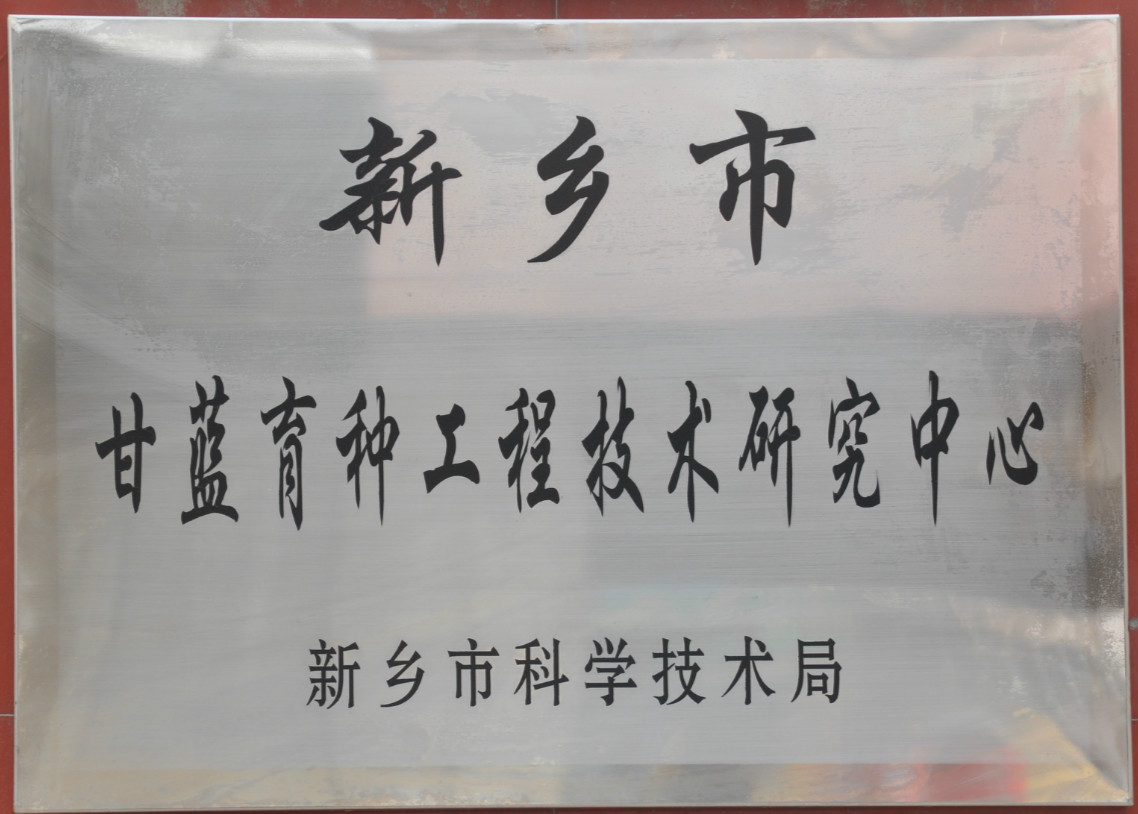 新乡市
甘蓝育种工程技术研究中心
新乡市科学技术局